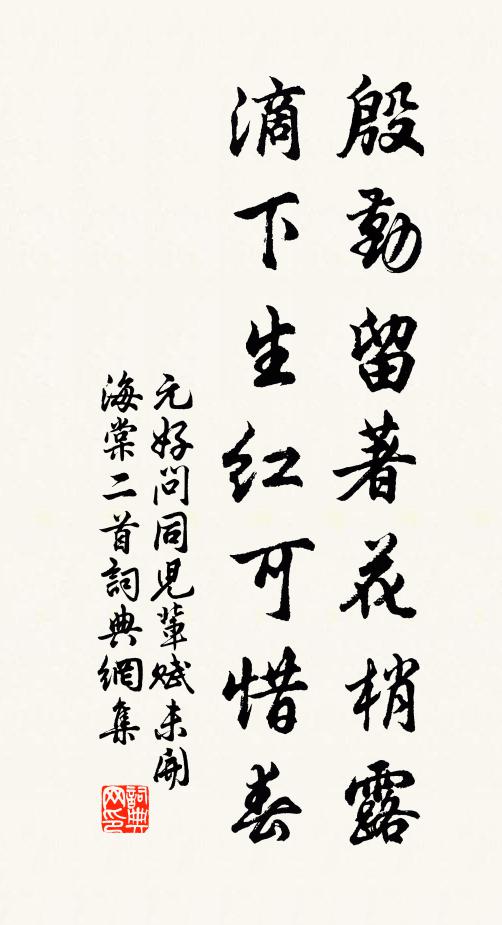 殷勤留著花梢露
滴下生红可惜春
元好问同児輩赋未開
海棠二首詞典網集
詞典网印